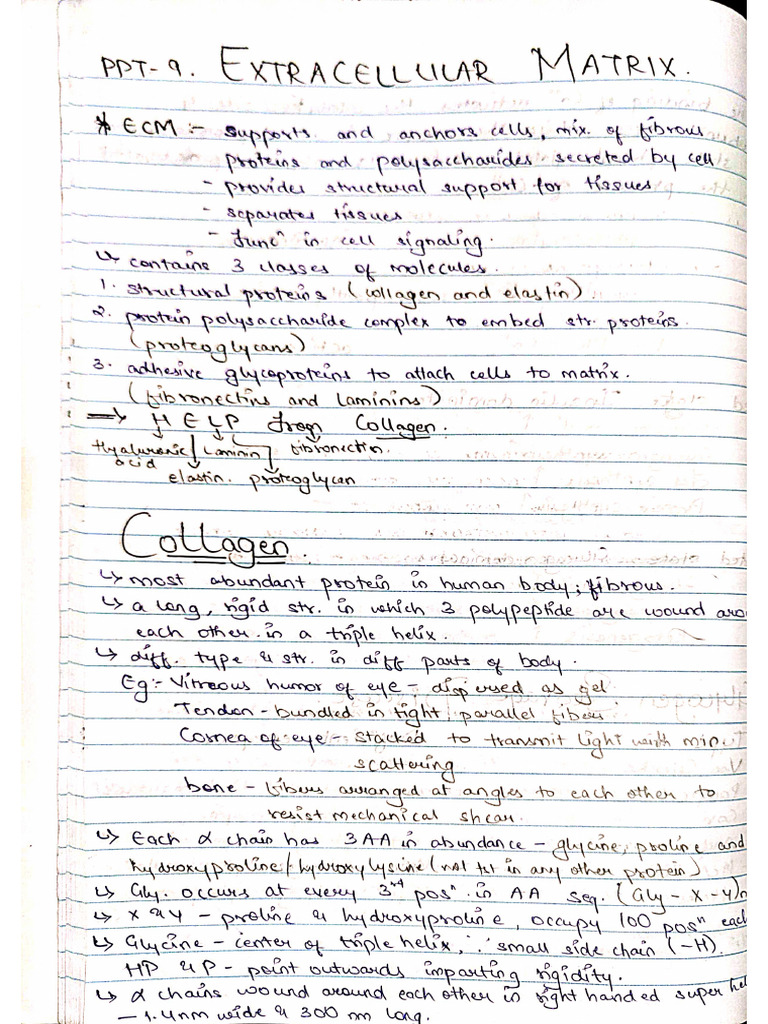 PPT-9. EXTRACELLULAR MATRIX.
* ECM :- supports and anchors cells, mix. of fibrous
proteins and polysaccharides secreted by cell
- provides structural support for tissues
- separates tissues
- Funcⁿ in cell signaling.
↳ contains 3 classes of molecules.
1. structural proteins (collagen and elastin)
2. protein polysaccharide complex to embed str. proteins.
(proteoglycans)
3. adhesive glycoproteins to attach cells to matrix.
(fibronectins and laminins)
⇒ H E L P from Collagen.
Hyaluronic laminin fibronectin.
acid
elastin. proteoglycan
Collagen.
↳ most abundant protein in human body; fibrous.
↳ a long, rigid str. in which 3 polypeptide are wound aro
each other in a triple helix.
↳ diff. type & str. in diff parts of body.
Eg:- Vitreous humor of eye - dispersed as gel.
Tendon - bundled in tight, parallel fibers
Cornea of eye - stacked to transmit light with min
scattering
bone - fibers arranged at angles to each other to
resist mechanical shear.
↳ Each α chain has 3 AA in abundance - glycine, proline and
hydroxyproline/hydroxylysine (not in any other protein)
↳ Gly. occurs at every 3rd posⁿ in AA seq. (Gly - X - Y)n
↳ X & Y - proline & hydroxyproline, occupy 100 posⁿ each
↳ Glycine - center of triple helix, ∵ small side chain (-H).
HP & P - point outwards imparting rigidity.
↳ α chains wound around each other in right handed super hel
- 1.4nm wide & 300 nm long.